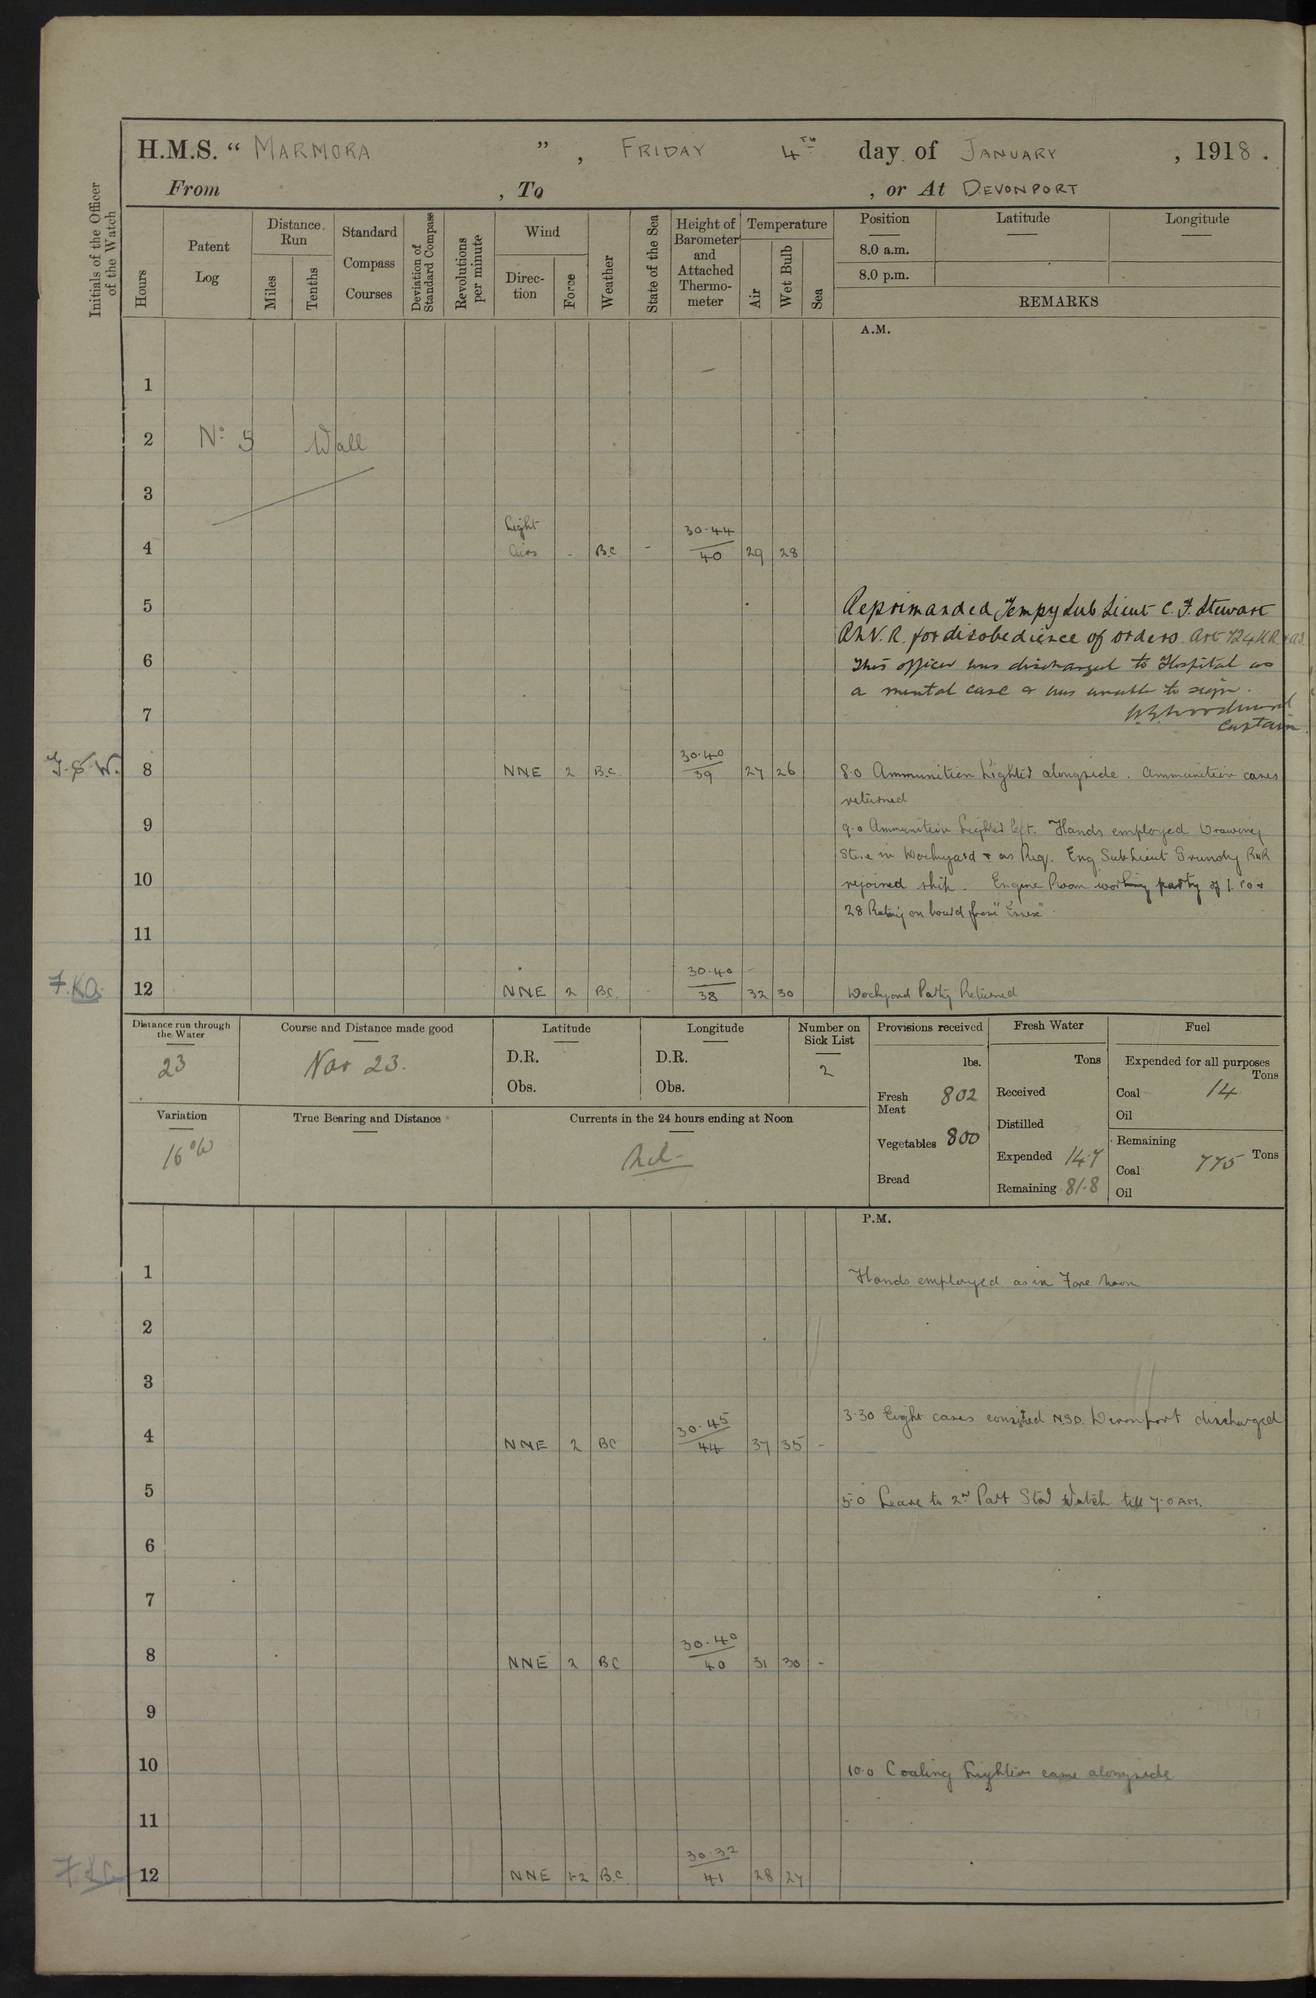 H.M.S. " MARMORA " , FRIDAY 4TH day of JANUARY , 1918 .
From , To , or At DEVONPORT
Initials of the Officer of the Watch
Hours
Patent Log
Distance Run
Miles
Tenths
Standard Compass Courses
Deviation of Standard Compass
Revolutions per minute
Wind
Direc-tion
Force
Weather
State of the Sea
Height of Barometer and Attached Thermo-meter
Temperature
Air
Wet Bulb
Sea
Position Latitude Longitude
8.0 a.m.
8.0 p.m.
REMARKS
A.M.
1
2 No 5 Wall
3
Light 30.44
4 Airs - BC - 40 29 28
5 Reprimanded Tempy Sub Lieut C. F. Stewart
R.N.V.R. for disobedience of orders Art 724 K.R. & A.I.
6 This officer was discharged to Hospital as
a mental case & was unable to sign.
7
Captain.
30.40
8 NNE 2 B.C. 39 27 26 8.0 Ammunition Lighter alongside. Ammunition cases
returned
9 9.0 Ammunition Lighter left. Hands employed Drawing
Store in Dockyard & as Req. Eng. Sub Lieut Grundy RNR
10 rejoined ship. Engine Room working party of 1 CO &
28 Rating on board from "Essex"
11
30.40
F.KO. 12 NNE 2 BC. 38 32 30 Dockyard Party Returned
Distance run through the Water
23
Course and Distance made good
Nar 23.
Latitude
D.R.
Obs.
Longitude
D.R.
Obs.
Number on Sick List
2
Provisions received
lbs.
Fresh Meat 802
Vegetables 800
Bread
Fresh Water
Tons
Received
Distilled
Expended 147
Remaining 818
Fuel
Expended for all purposes
Tons
Coal 14
Oil
Remaining
Coal 775 Tons
Oil
Variation
16°W
True Bearing and Distance
Currents in the 24 hours ending at Noon
Nil
P.M.
1 Hands employed as in Fore Noon
2
3
30.45 3.30 Eight cases NSO. Devonport discharged
4 NNE 2 BC 44 37 35 -
5 5.0 Leave to 2nd Part Stbd Watch till 7.0 AM.
6
7
30.40
8 NNE 2 BC 40 31 30 -
9
10 10.0 Coaling Lighter came alongside
11
30.32
12 NNE 1-2 B.C. 41 28 27